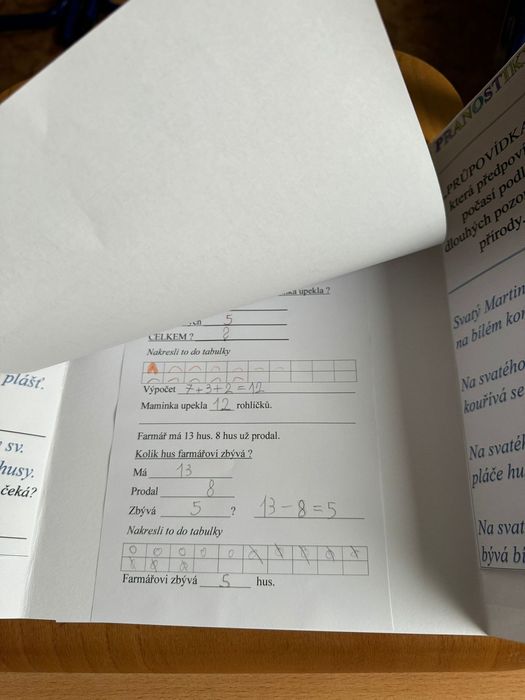 upekla ?
5
CELKEM ? 8
Nakresli to do tabulky
Výpočet 7+3+2=12
Maminka upekla 12 rohlíčků.
Farmář má 13 hus. 8 hus už prodal.
Kolik hus farmářovi zbývá ?
Má 13
Prodal 8
Zbývá 5 ? 13-8=5
Nakresli to do tabulky
Farmářovi zbývá 5 hus.
plášť.
sv.
husy.
čeká?
PRANOSTIK
PRŮPOVÍDKA
která předpoví
počasí podl
dlouhých pozo
přírody.
Svatý Martin
na bílém kon
Na svatého
kouřívá se
Na svaté
pláče hu
Na svat
bývá bí